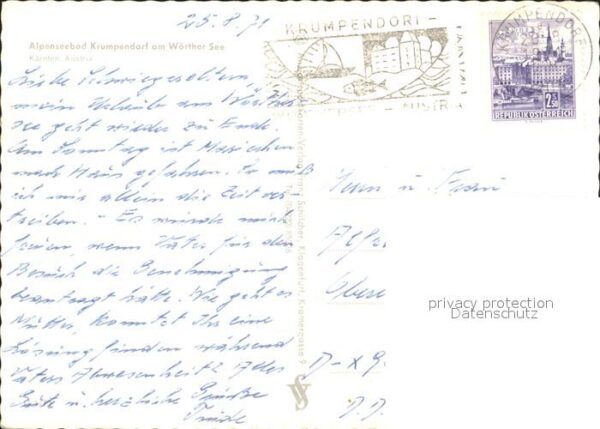 25.8.71
Alpenseebad Krumpendorf am Wörther See
Kärnten, Austria
Liebe Schwiegereltern
mein Urlaub am Wörther-
see geht wieder zu Ende.
Am Sonntag ist Mariechen
nach Haus gefahren. So muß
ich mir allein die Zeit ver-
treiben. - Es würde mich
freuen, wenn Vater für den
Besuch die Genehmigung
beantragt hätte. Wie geht es
Mutter, konntet Ihr eine
Lösung finden während
Vaters Abwesenheit? Alles
Gute u. herzliche Grüße
KRUMPENDORF -
- AUSTRIA
KRUMPENDORF
2S
REPUBLIK ÖSTERREICH
Herrn u. Frau
Obere
D-X9
D.D.
privacy protection
Datenschutz